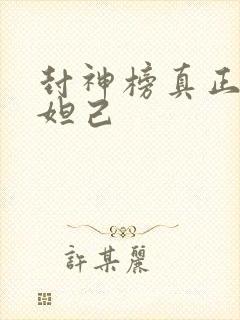 封神榜真正
妲己
許某麗